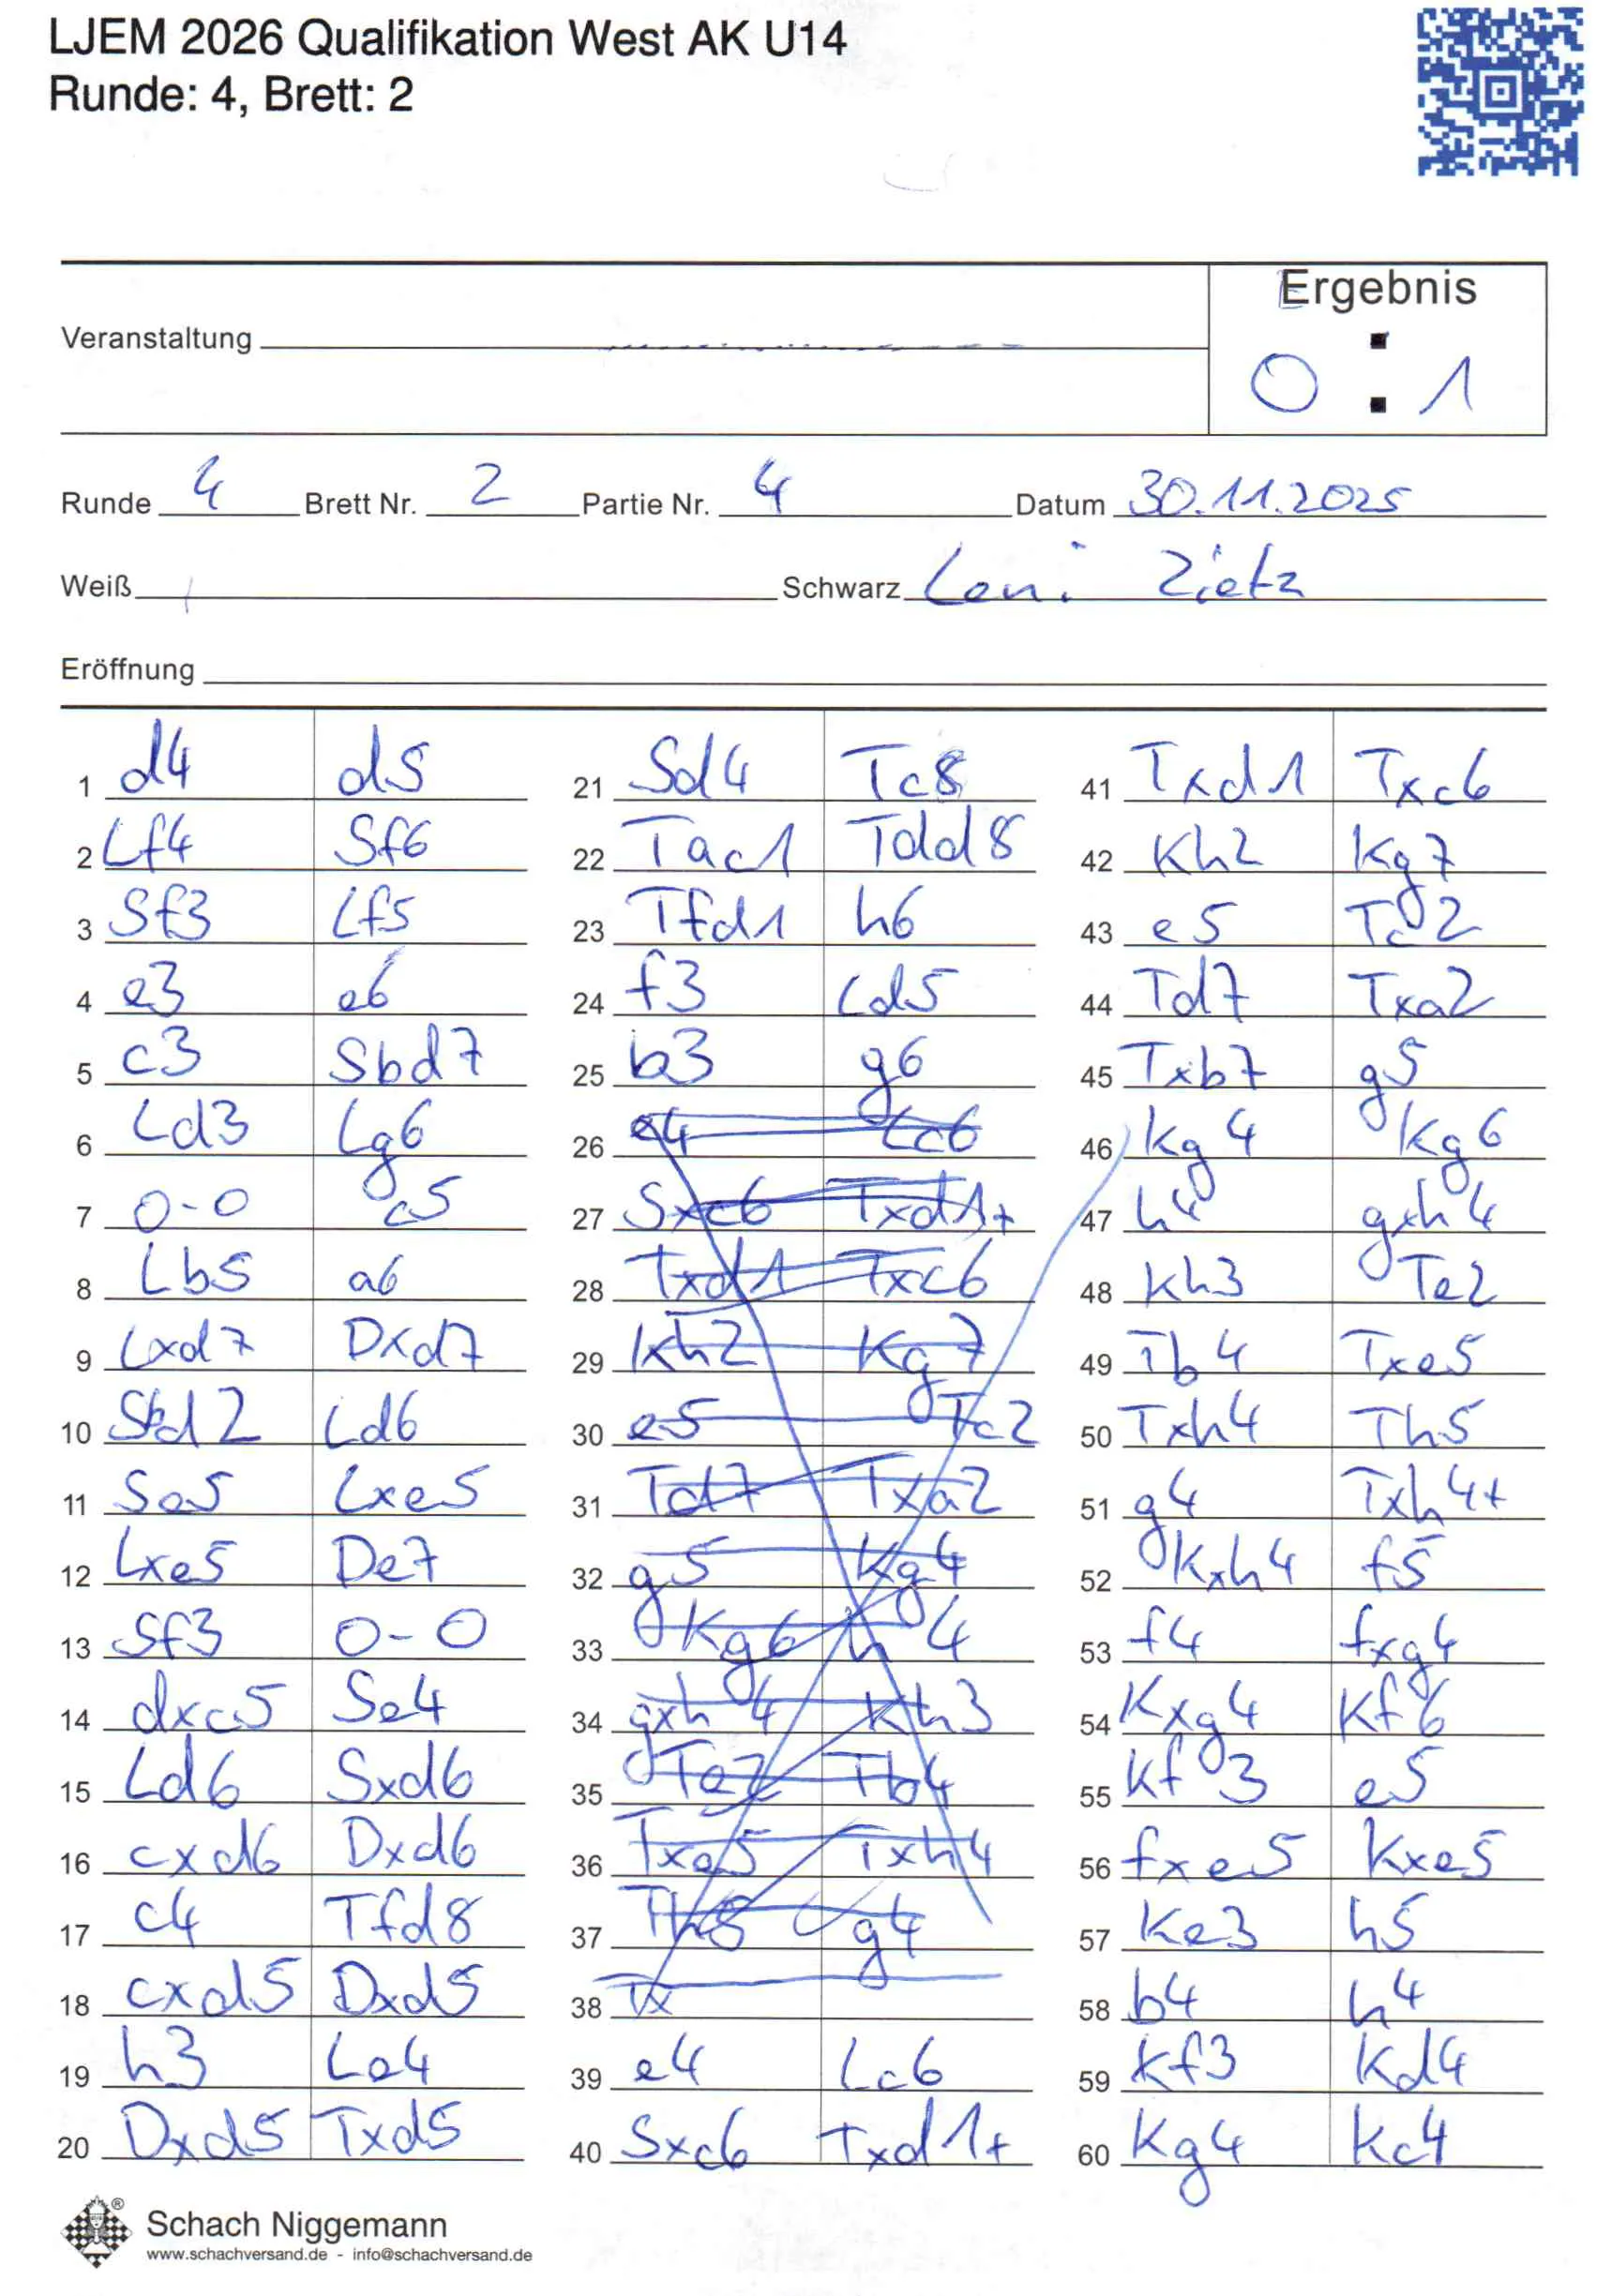 LJEM 2026 Qualifikation West AK U14
Runde: 4, Brett: 2
Ergebnis
Veranstaltung
0 : 1
Runde 4 Brett Nr. 2 Partie Nr. 4 Datum 30.11.2025
Weiß Schwarz Leni Zietz
Eröffnung
1 d4 d5
2 Lf4 Sf6
3 Sf3 Lf5
4 e3 e6
5 c3 Sbd7
6 Ld3 Lg6
7 0-0 c5
8 Lb5 a6
9 Lxd7 Dxd7
10 Sbd2 Ld6
11 Se5 Lxe5
12 Lxe5 De7
13 Sf3 0-0
14 dxc5 Se4
15 Ld6 Sxd6
16 cxd6 Dxd6
17 c4 Tfd8
18 cxd5 Dxd5
19 h3 Le4
20 Dxd5 Txd5
21 Sd4 Tc8
22 Tac1 Tdd8
23 Tfd1 h6
24 f3 Ld5
25 b3 g6
26 e4 Lc6
27 Sxc6 Txd1+
28 Txd1 Txc6
29 Kh2 Kg7
30 e5 Tc2
31 Td7 Txa2
32 g5 Kg4
33 Kg6 h4
34 gxh4 Kh3
35 Te2 Tb4
36 Txe5 Txh4
37 Th5 g4
38 Tx
39 e4 Lc6
40 Sxc6 Txd1+
41 Txd1 Txc6
42 Kh2 Kg7
43 e5 Tc2
44 Td7 Txa2
45 Txb7 g5
46 Kg4 Kg6
47 h4 gxh4
48 Kh3 Te2
49 Tb4 Txe5
50 Txh4 Th5
51 g4 Txh4+
52 Kxh4 f5
53 f4 fxg4
54 Kxg4 Kf6
55 Kf3 e5
56 fxe5 Kxe5
57 Ke3 h5
58 b4 h4
59 Kf3 Kd4
60 Kg4 Kc4
Schach Niggemann
www.schachversand.de - info@schachversand.de